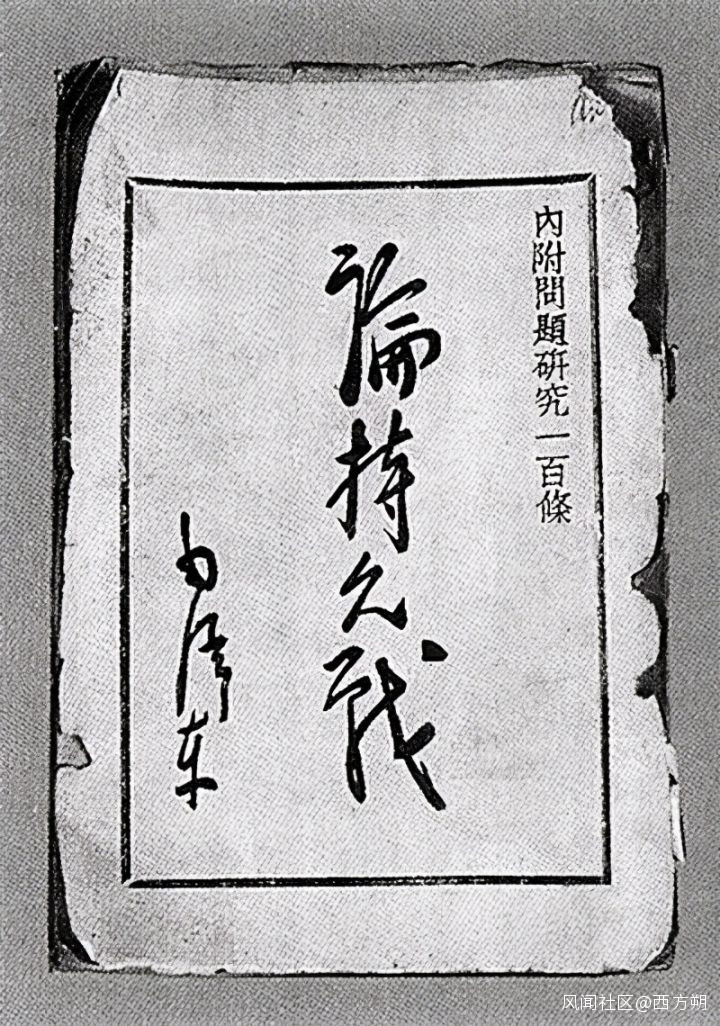 內附問題研究一百條
論持久戰
毛澤东
风闻社区@西方朔